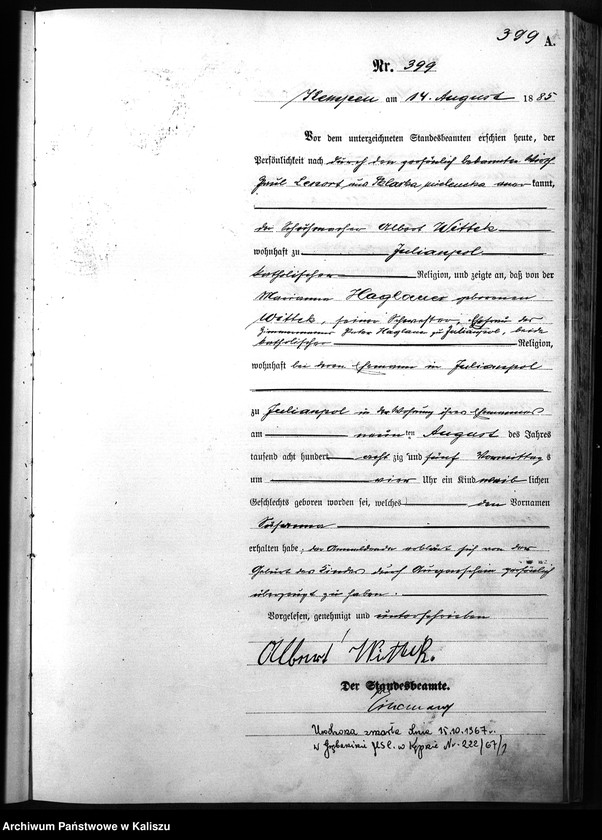 399 A.
Nr. 399
Kempen am 14. August 1885
Vor dem unterzeichneten Standesbeamten erschien heute, der
Persönlichkeit nach durch den persönlich bekannten
Paul und kannt,
der Schuhmacher Albert Wittek
wohnhaft zu Julianpol
katholischer Religion, und zeigte an, daß von der
Marianna Haglauer geborenen
Wittek, seiner Schwester, Ehefrau des
Zimmermanns Peter zu Julianpol, beide
katholischer Religion,
wohnhaft bei deren Ehemann in Julianpol
zu Julianpol in der Wohnung ihres Ehemannes
am neunten August des Jahres
tausend acht hundert acht zig und fünf Vormittags
um vier Uhr ein Kind weiblichen
Geschlechts geboren worden sei, welches den Vornamen
erhalten habe, der Anmeldende erklärt sich von der
Geburt des Kindes durch Augenschein persönlich
überzeugt zu haben.
Vorgelesen, genehmigt und unterschrieben
Albert Wittek.
Der Standesbeamte.
zmarła dnia 15.10.1967 r.
w USC. w Kępnie Nr. 222/67/
Archiwum Państwowe w Kaliszu